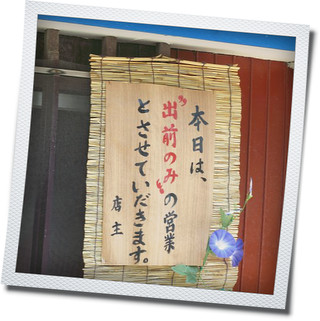 本日は、
出前のみの営業
とさせていだきます。
店主